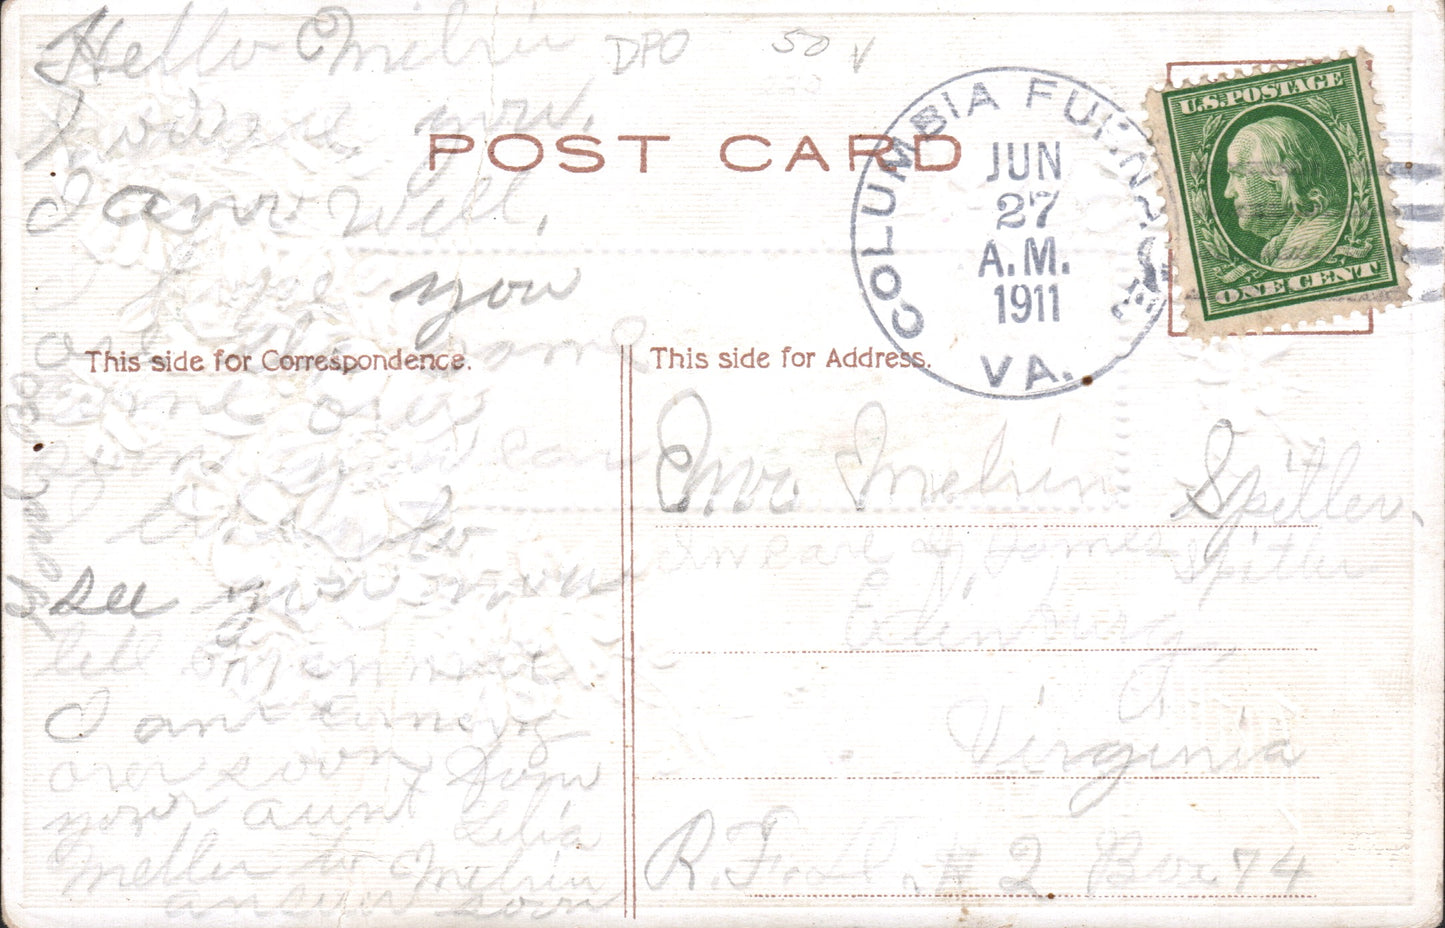 Hello Melvin
how are you.
I am Well,
I hope you
are the same
come over
some
to
see you
tell
I am coming
over soon from
your aunt Lelia
Meller to Melvin
answer soon
DPO 50 V
POST CARD
COLUMBIA FURNACE
JUN
27
A.M.
1911
VA.
U.S. POSTAGE
ONE CENT
This side for Correspondence.
This side for Address.
Mr Melvin Spitler.
In care of James Spitler
Edinburg
Virginia
R.F.D. # 2 Box 74